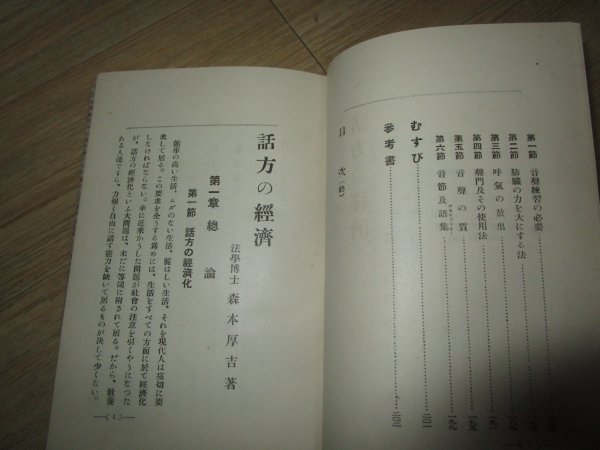 第一節 音聲練習の必要
第二節 肺臟の力を大にする法
第三節 呼氣の放出
第四節 聲門及その使用法 一九五
第五節 音聲の質 一九六
第六節 音節及語集 一九九
むすび 二〇一
參考書 二〇三
目次(終)
話方の經濟
法學博士 森本厚吉著
第一章 總論
第一節 話方の經濟化
能率の高い生活、ムダのない生活、麗はしい生活、それを現代人は痛切に要
求して居る。この要求を全うする爲めには、生活をすべての方面に於て經濟化
しなければならない。幸に近來かうした問題が社會の注意を引くやうになつた
が、話方の經濟化といふ大問題は、未だに等閑に附されて居る。だから、敎養
ある人達ですら、力强く自由に話す能力を缺いて居るものが決して少くない。
(1)